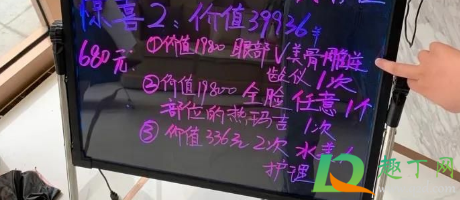 惊喜2: 价值39936元
680元: ①价值19800 眼部V美骨雕逆
龄仪 1次
②价值19800 全脸任意1个
部位的热玛吉 1次
③ 价值336元 2次 水美
护理
趣丁网